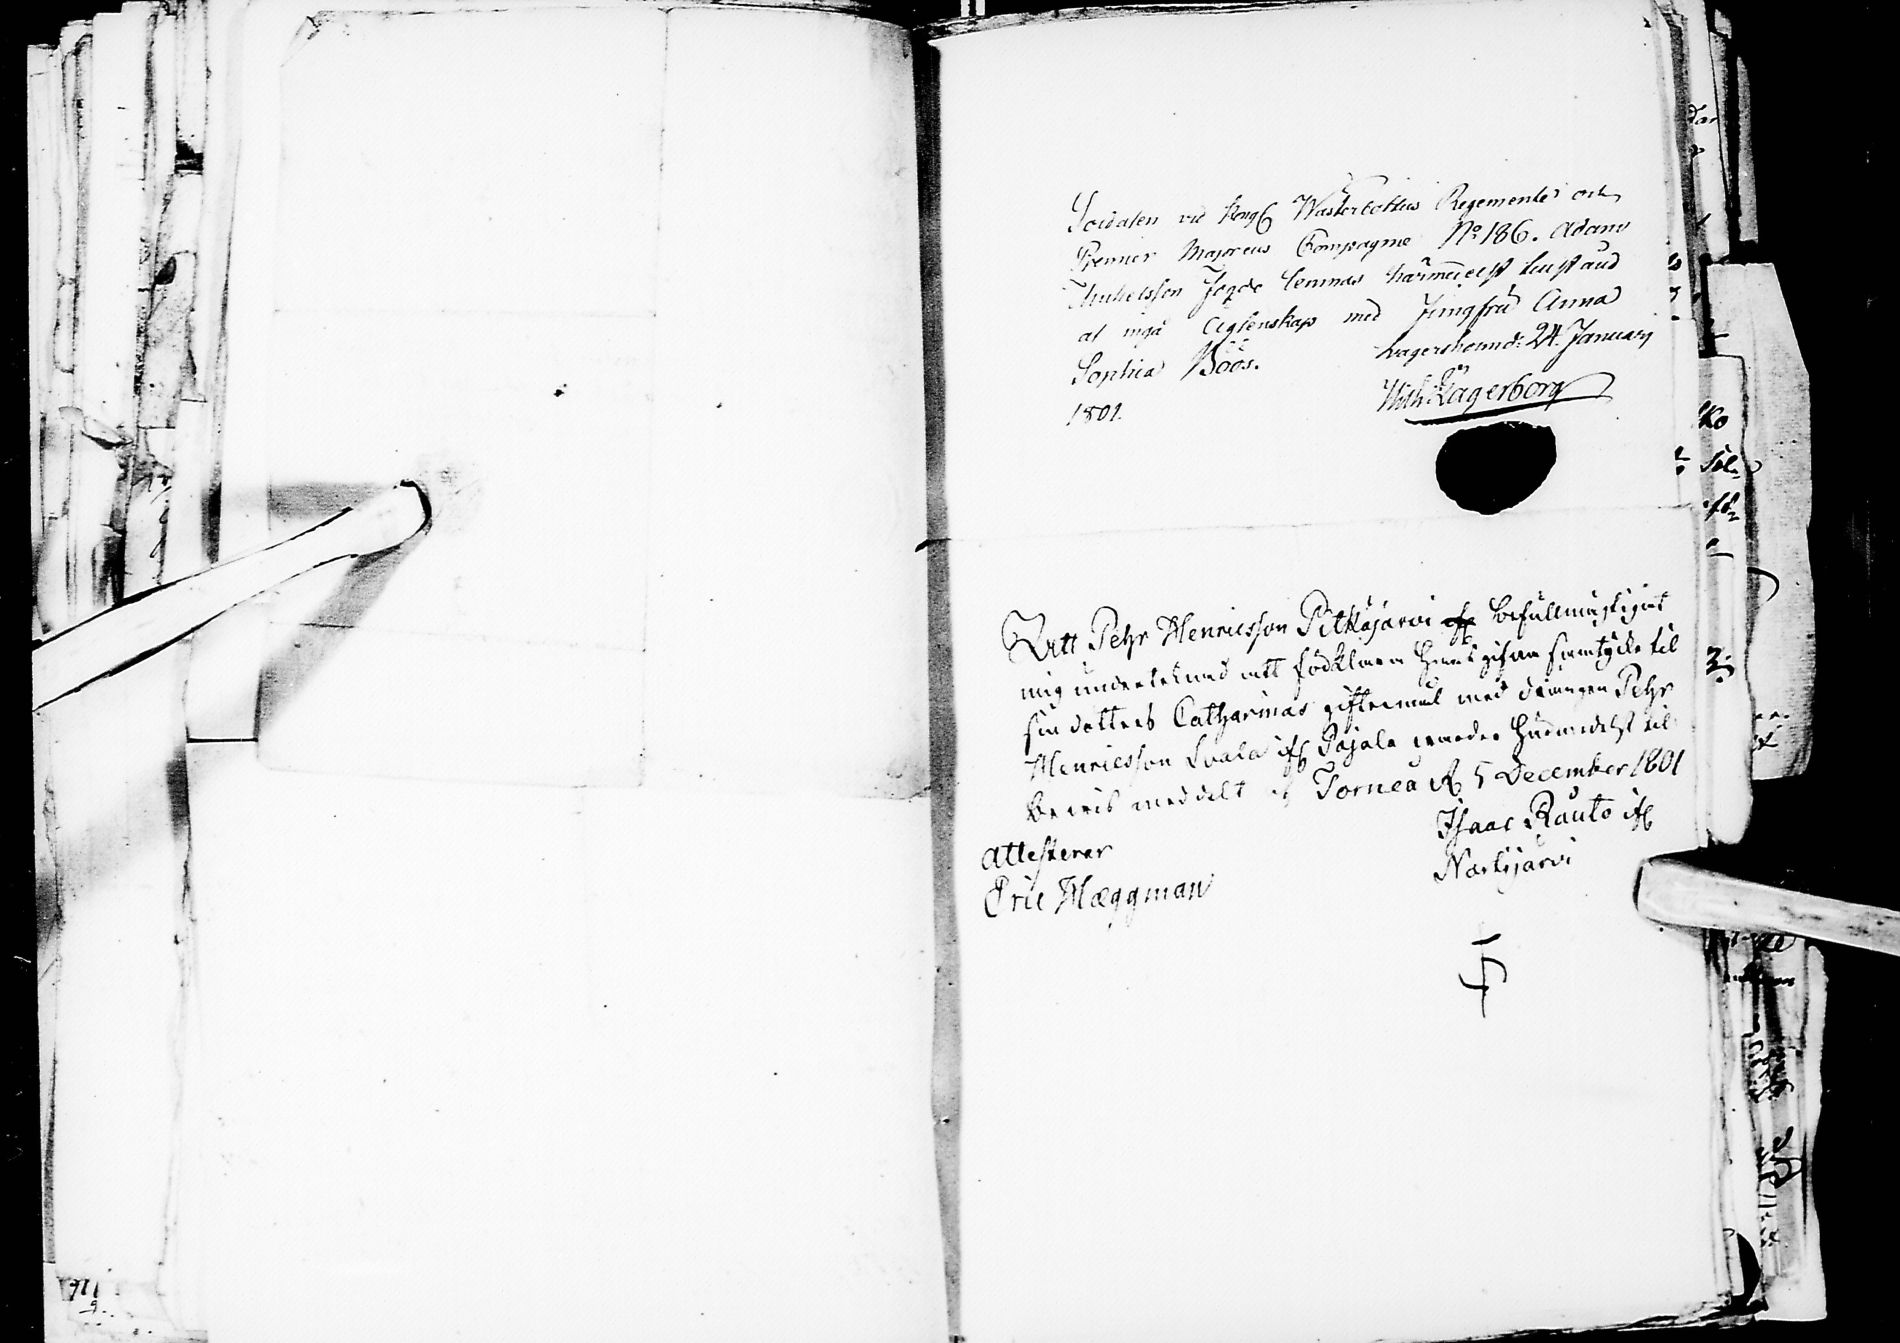 Soldaten vid Kongl Wästerbottns Regemente och
Premier Majorens Compagnie No 186. Adam
Michelsson lemnas härmedelst lof
at ingå Ägtenskap med Jungfru Anna
Sophia Böös. Lagersheim d: 24. January
1801. Wilh: Lagerborg
Att Pehr Henricsson Pitkäjärvi befullmägtigat
mig undertecknad att förklara Hans gifna samtycke til
sin dotters Catharinas giftermål med drängen Pehr
Henricsson Lvala ifr Pajala warder härmedelst til
bewis meddelt Torneå d 5 December 1801
Isaac Rauto ifr
Narkijärvi
attesterar
Eric Hæggman